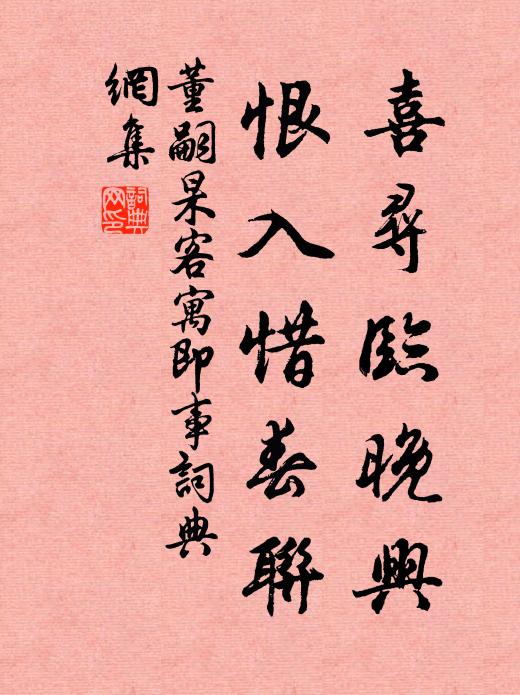 喜尋臨晚興
恨入惜春聯
董嗣杲客寓即事詞典
網集
詞典網印